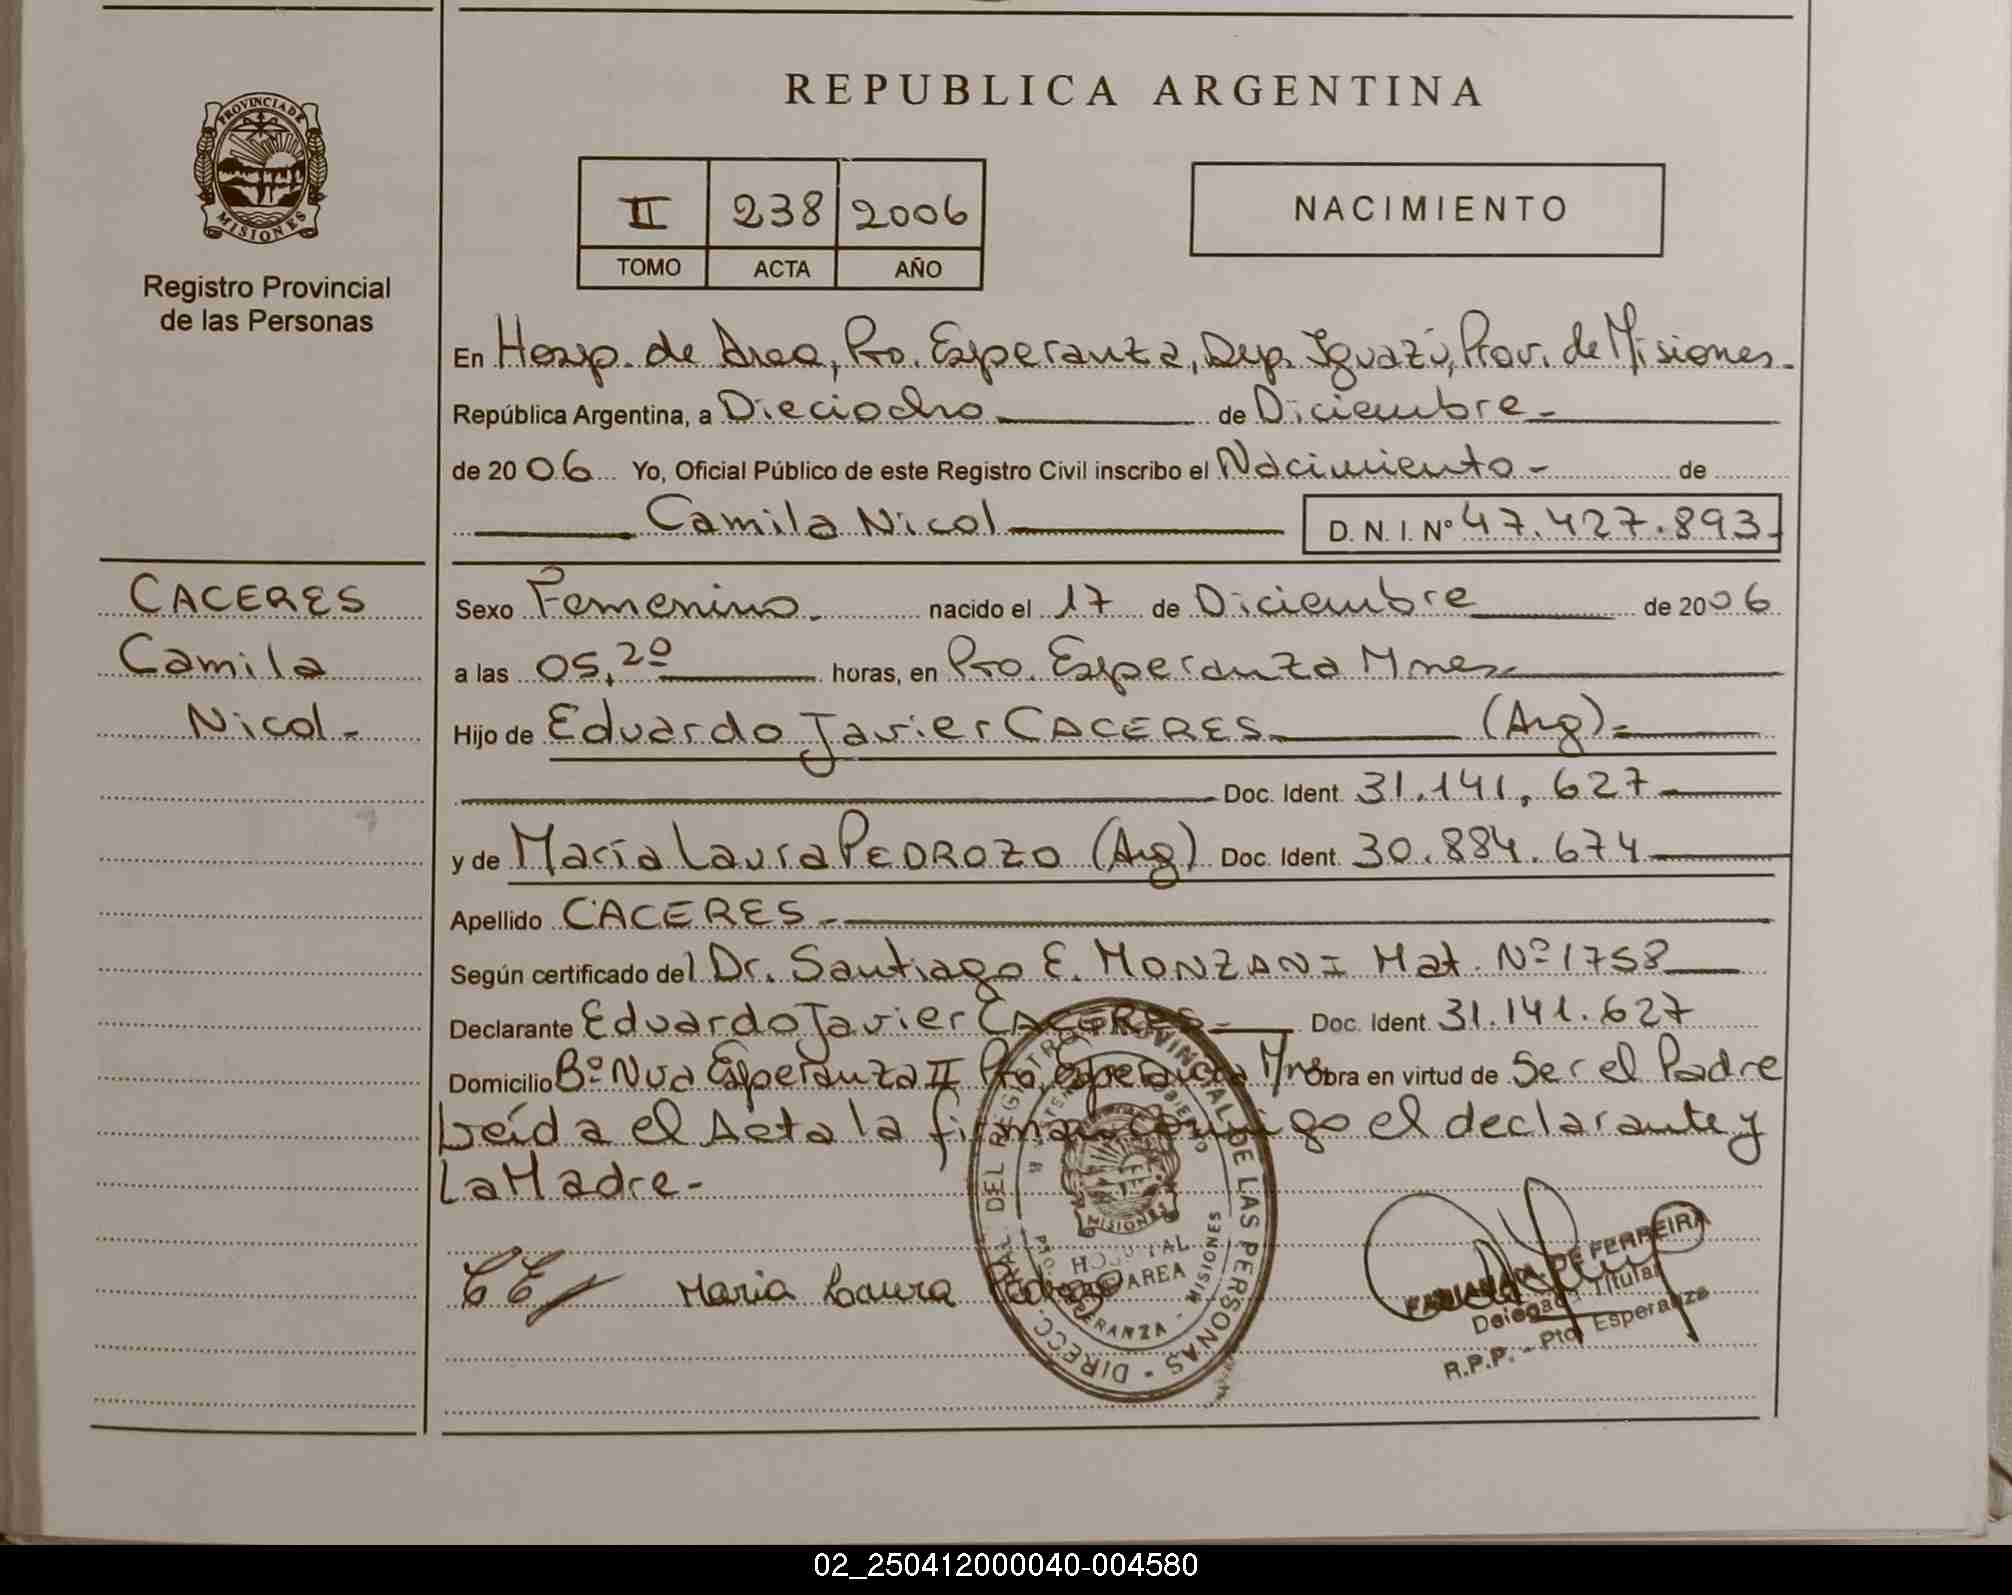 REPUBLICA ARGENTINA
PROVINCIA DE MISIONES
Registro Provincial
de las Personas
II 238 2006
TOMO ACTA AÑO
NACIMIENTO
En Hosp. de Area, Pto. Esperanza, Dep. Iguazú, Prov. de Misiones.
República Argentina, a Dieciocho de Diciembre-
de 2006 Yo, Oficial Público de este Registro Civil inscribo el Nacimiento- de
Camila Nicol D. N. I. Nº 47.427.893-
CACERES
Camila
Nicol-
Sexo Femenino. nacido el 17 de Diciembre de 2006
a las 05,20 horas, en Pto. Esperanza Mnes
Hijo de Eduardo Javier CACERES (Arg)=
Doc. Ident. 31.141.627
y de María Laura PEDROZO (Arg) Doc. Ident. 30.884.674
Apellido CACERES
Según certificado del Dr. Santiago E. MONZANI Mat. Nº 1758
Declarante Eduardo Javier CACERES Doc. Ident. 31.141.627
Domicilio Bº Nva Esperanza II Pto Esperanza Mnes Obra en virtud de Ser el Padre
Leída el Acta la firman conmigo el declarante y
La Madre-
Maria Laura Pedrozo
DIRECC. GRAL. DEL REGISTRO PROVINCIAL DE LAS PERSONAS
MISIONES
HOSPITAL
AREA
ESPERANZA - MISIONES
DE FERREIRA
Delegada Titular
R.P.P. - Pto. Esperanza
02_250412000040-004580